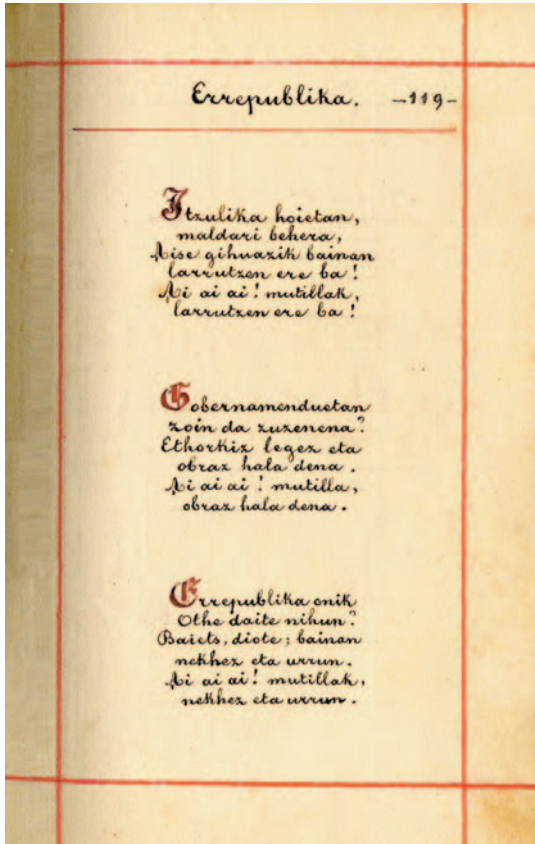 Errepublika. -119-
Itzulika hoietan,
maldari behera,
Aise gihuazik bainan
larrutzen ere ba!
Ai ai ai! mutillak,
larrutzen ere ba!
Gobernamenduetan
zoin da zuzenena?
Ethorkiz legez eta
obraz hala dena.
Ai ai ai! mutilla,
obraz hala dena.
Errepublika onik
Othe daite nihun?
Baiets, diote; bainan
nekhez eta urrun.
Ai ai ai! mutillak,
nekhez eta urrun.